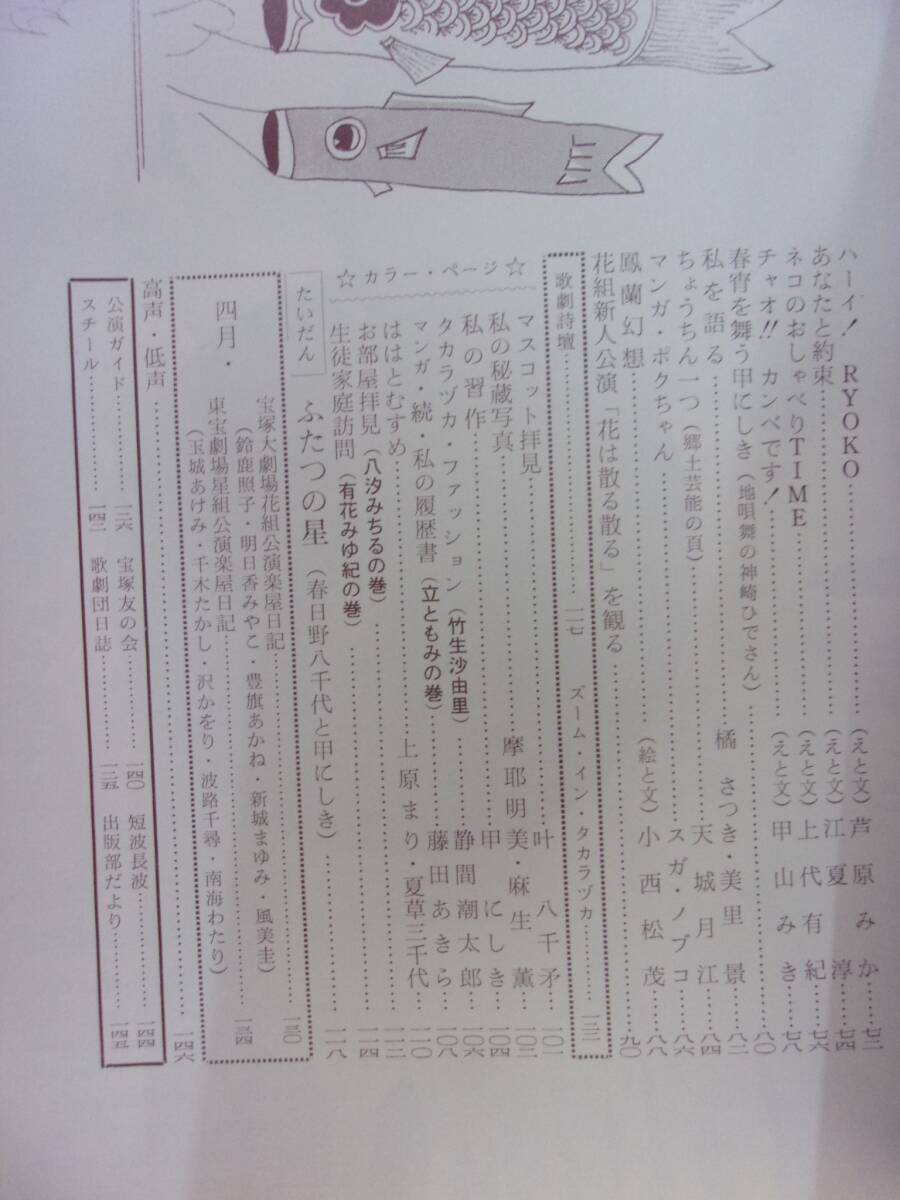 ハーイ! RYOKO……(えと文)芦原みか…七二
あなたと約束……(えと文)江夏淳…七四
ネコのおしゃべりTIME……(えと文)上代有紀…七六
チャオ!! カンベです!……(えと文)甲山みき…七八
春宵を舞う甲にしき(地唄舞の神崎ひでさん)……八〇
私を語る……橘さつき・美里景…八二
ちょうちん一つ(郷土芸能の頁)……天城月江…八四
マンガ・ボクちゃん……スガ・ノブコ…八六
鳳蘭幻想……(絵と文)小西松茂…八八
花組新人公演「花は散る散る」を観る……九〇
歌劇詩壇……一一七 ズーム・イン・タカラヅカ……一二二
☆カラー・ページ☆
マスコット拝見……叶八千矛…一〇一
私の秘蔵写真……摩耶明美・麻生薫…一〇三
私の習作……甲にしき…一〇四
タカラヅカ・ファッション(竹生沙由里)……静間潮太郎…一〇六
マンガ・続・私の履歴書(立ともみの巻)……藤田あきら…一〇八
ははとむすめ……上原まり・夏草三千代…一一〇
お部屋拝見(八汐みちるの巻)……一一二
生徒家庭訪問(有花みゆ紀の巻)……一一四
たいだん ふたつの星(春日野八千代と甲にしき)……一一八
四月・
宝塚大劇場花組公演楽屋日記……一三〇
(鈴鹿照子・明日香みやこ・豊旗あかね・新城まゆみ・風美圭)
東宝劇場星組公演楽屋日記……一三四
(玉城あけみ・千木たかし・沢かをり・波路千尋・南海わたり)
高声・低声……一四六
公演ガイド……一三六 宝塚友の会……一四〇 短波長波……一四四
スチール……一四二 歌劇団日誌……一二五 出版部だより……一四五